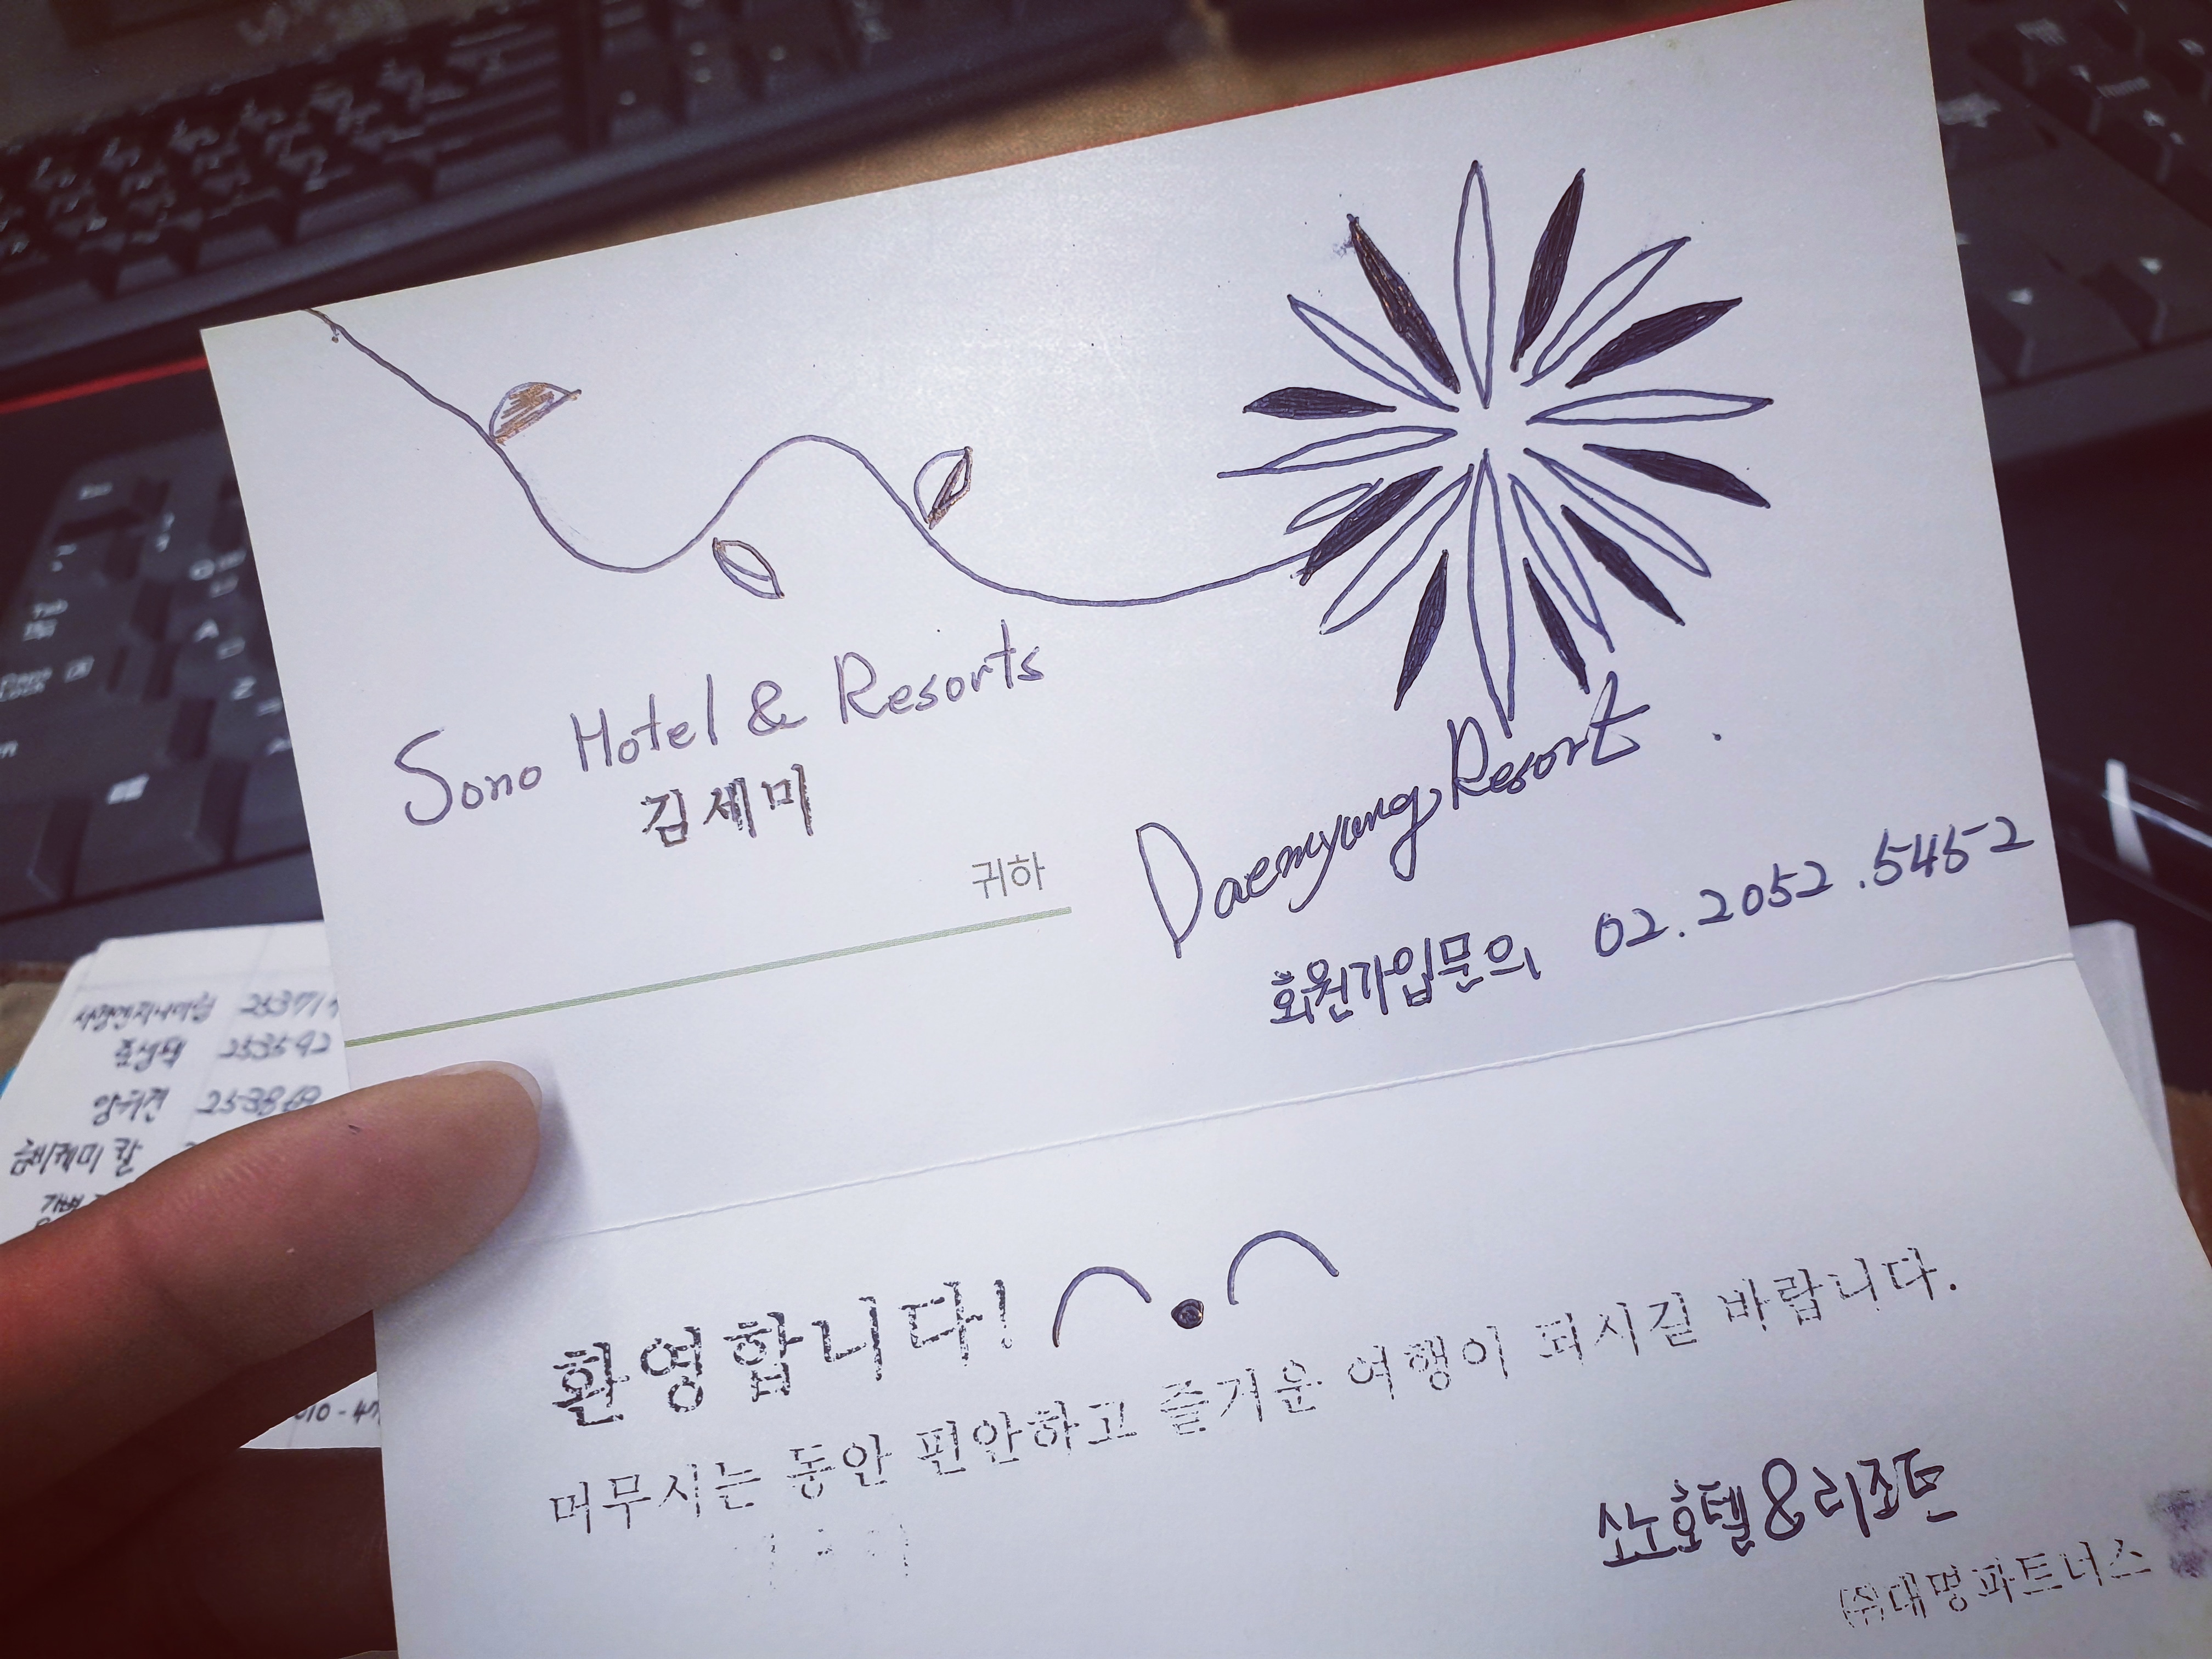 Sono Hotel & Resorts
김세미
귀하
Daemyung Resort
회원가입문의 02.2052.5452
환영합니다!
머무시는 동안 편안하고 즐거운 여행이 되시길 바랍니다.
소노호텔&리조트
(주)대명파트너스
253592